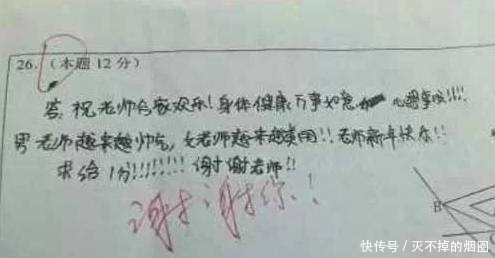 26.（本题12分）
答：祝老师合家欢乐！身体健康万事如意 心想事成!!!!
男老师越来越帅气，女老师越来越美丽!!老师新年快乐!!
求给1分!!!!!!!!谢谢老师!!
谢谢你!!
B
快传号／灭不掉的烟圈